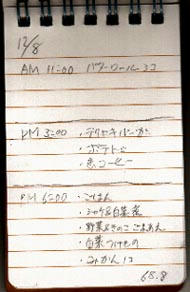 12/8
AM 11:00 バターロール 3コ
PM 3:00 ・テリヤキバーガー
・ポテトS
・缶コーヒー
PM 6:00 ・ごはん
・シャケ&白菜煮
・野菜ときのこごまあえ
・白菜つけもの
・みかん 1コ
68.8